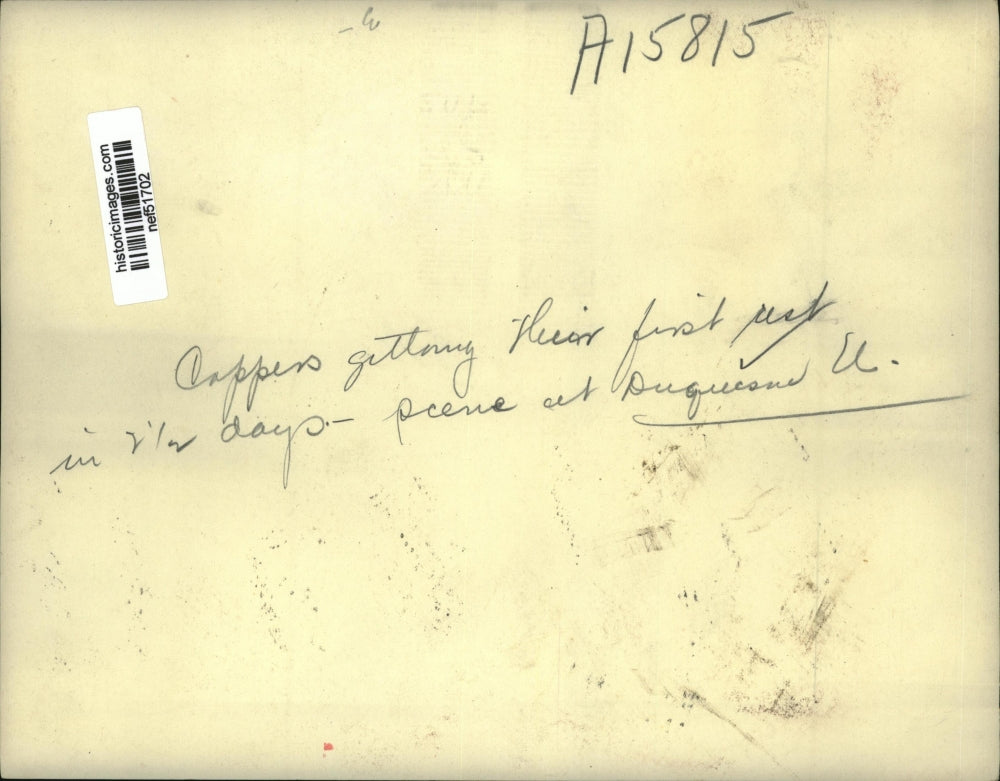 A15815
historicimages.com
nef51702
Coppers getting their first rest
in 2 1/2 days - scene at Duquesne U.